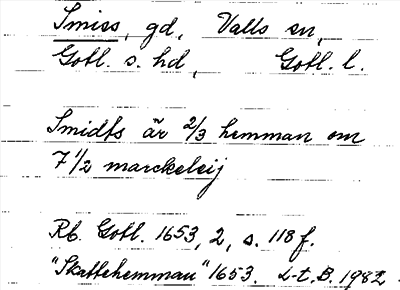 Smiss, gd, Valls sn,
Gotl. s. hd, Gotl. l.
Smidfs är 2/3 hemman om
7 1/2 marckeleij
Rb. Gotl. 1653, 2, s. 118 f.
"Skattehemman" 1653. L-t. B. 1982.